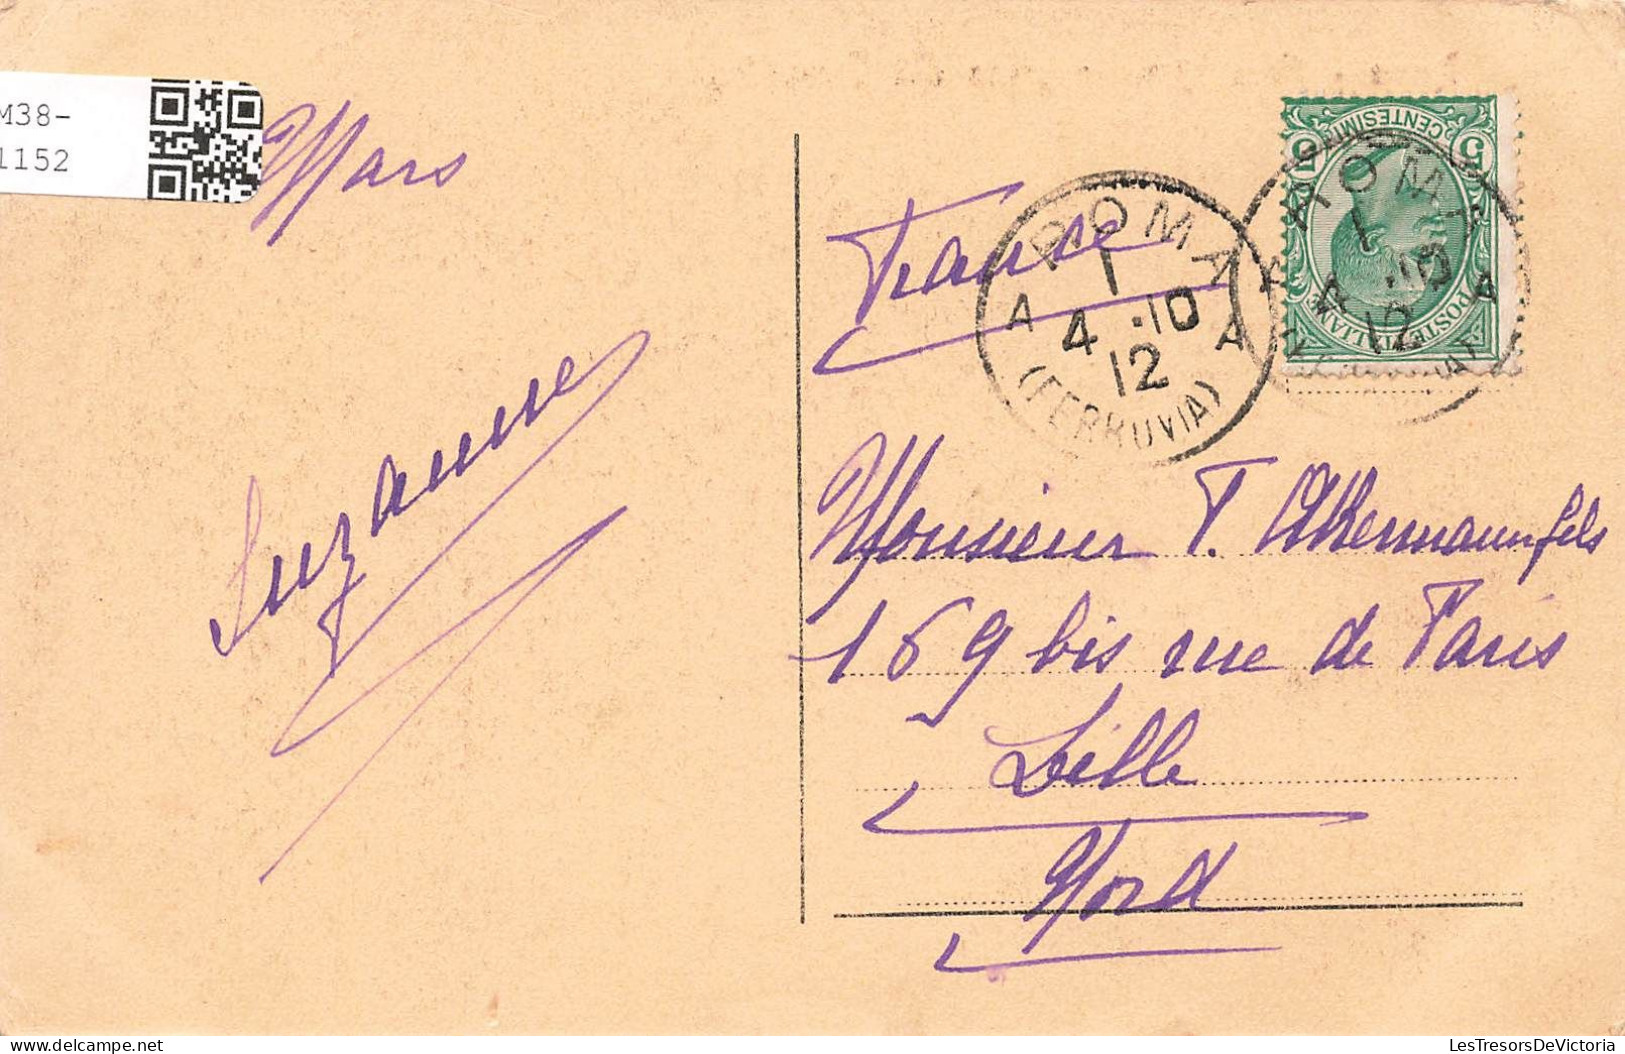 M38-
1152
Mars
Suzanne
France
ROMA
1
A 4 .10 A
12
(FERROVIA)
5 CENTESIMI 5
POSTE ITALIANE
ROMA
1
A 4 .10 A
12
Monsieur P. Akermann fils
169 bis rue de Paris
Lille
Nord
delcampe.net
LesTresorsDeVictoria